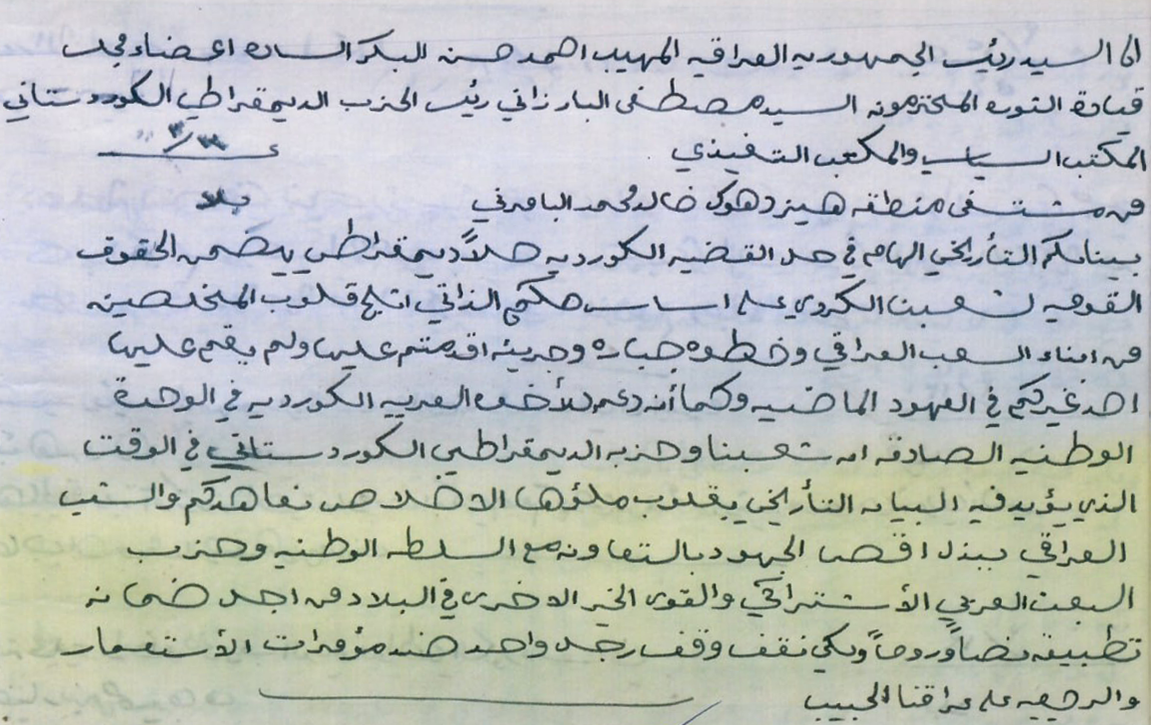 الى السيد رئيس الجمهوريه العراقيه المهيب احمد حسن البكر الساده اعضاء مجلس
قيادة الثوره المحترمون السيد مصطفى البارزاني رئيس الحزب الديمقراطي الكوردستاني
المكتب السياسي والمكتب التنفيذي
من مستشفى منطقه هيز دهوك خالد محمد البامرني
بيانكم التأريخي الهام في حل القضيه الكورديه حلاً ديمقراطي يضمن الحقوق
القوميه لشعبنا الكردي على اساس حكم الذاتي اثلج قلوب المخلصين
من ابناء الشعب العراقي وخطوه جباره وجريئه اقدمتم عليها ولم يقدم عليها
احد غيركم في العهود الماضيه وكما أنه دعم للأخوه العربيه الكورديه في الوحدة
الوطنيه الصادقه ان شعبنا وحزبه الديمقراطي الكوردستاني في الوقت
الذي يؤيد فيه البيان التأريخي بقلوب ملؤها الاخلاص نعاهدكم والشعب
العراقي ببذل اقصا الجهود بالتعاون مع السلطه الوطنيه وحزب
البعث العربي الأشتراكي والقوى الخير الاخرى في البلاد من اجل ضمانه
تطبيقه نصاً وروحاً ولكي نقف وقف رجل واحد ضد مؤمرات الأستعمار
والرجعيه على عراقنا الحبيب